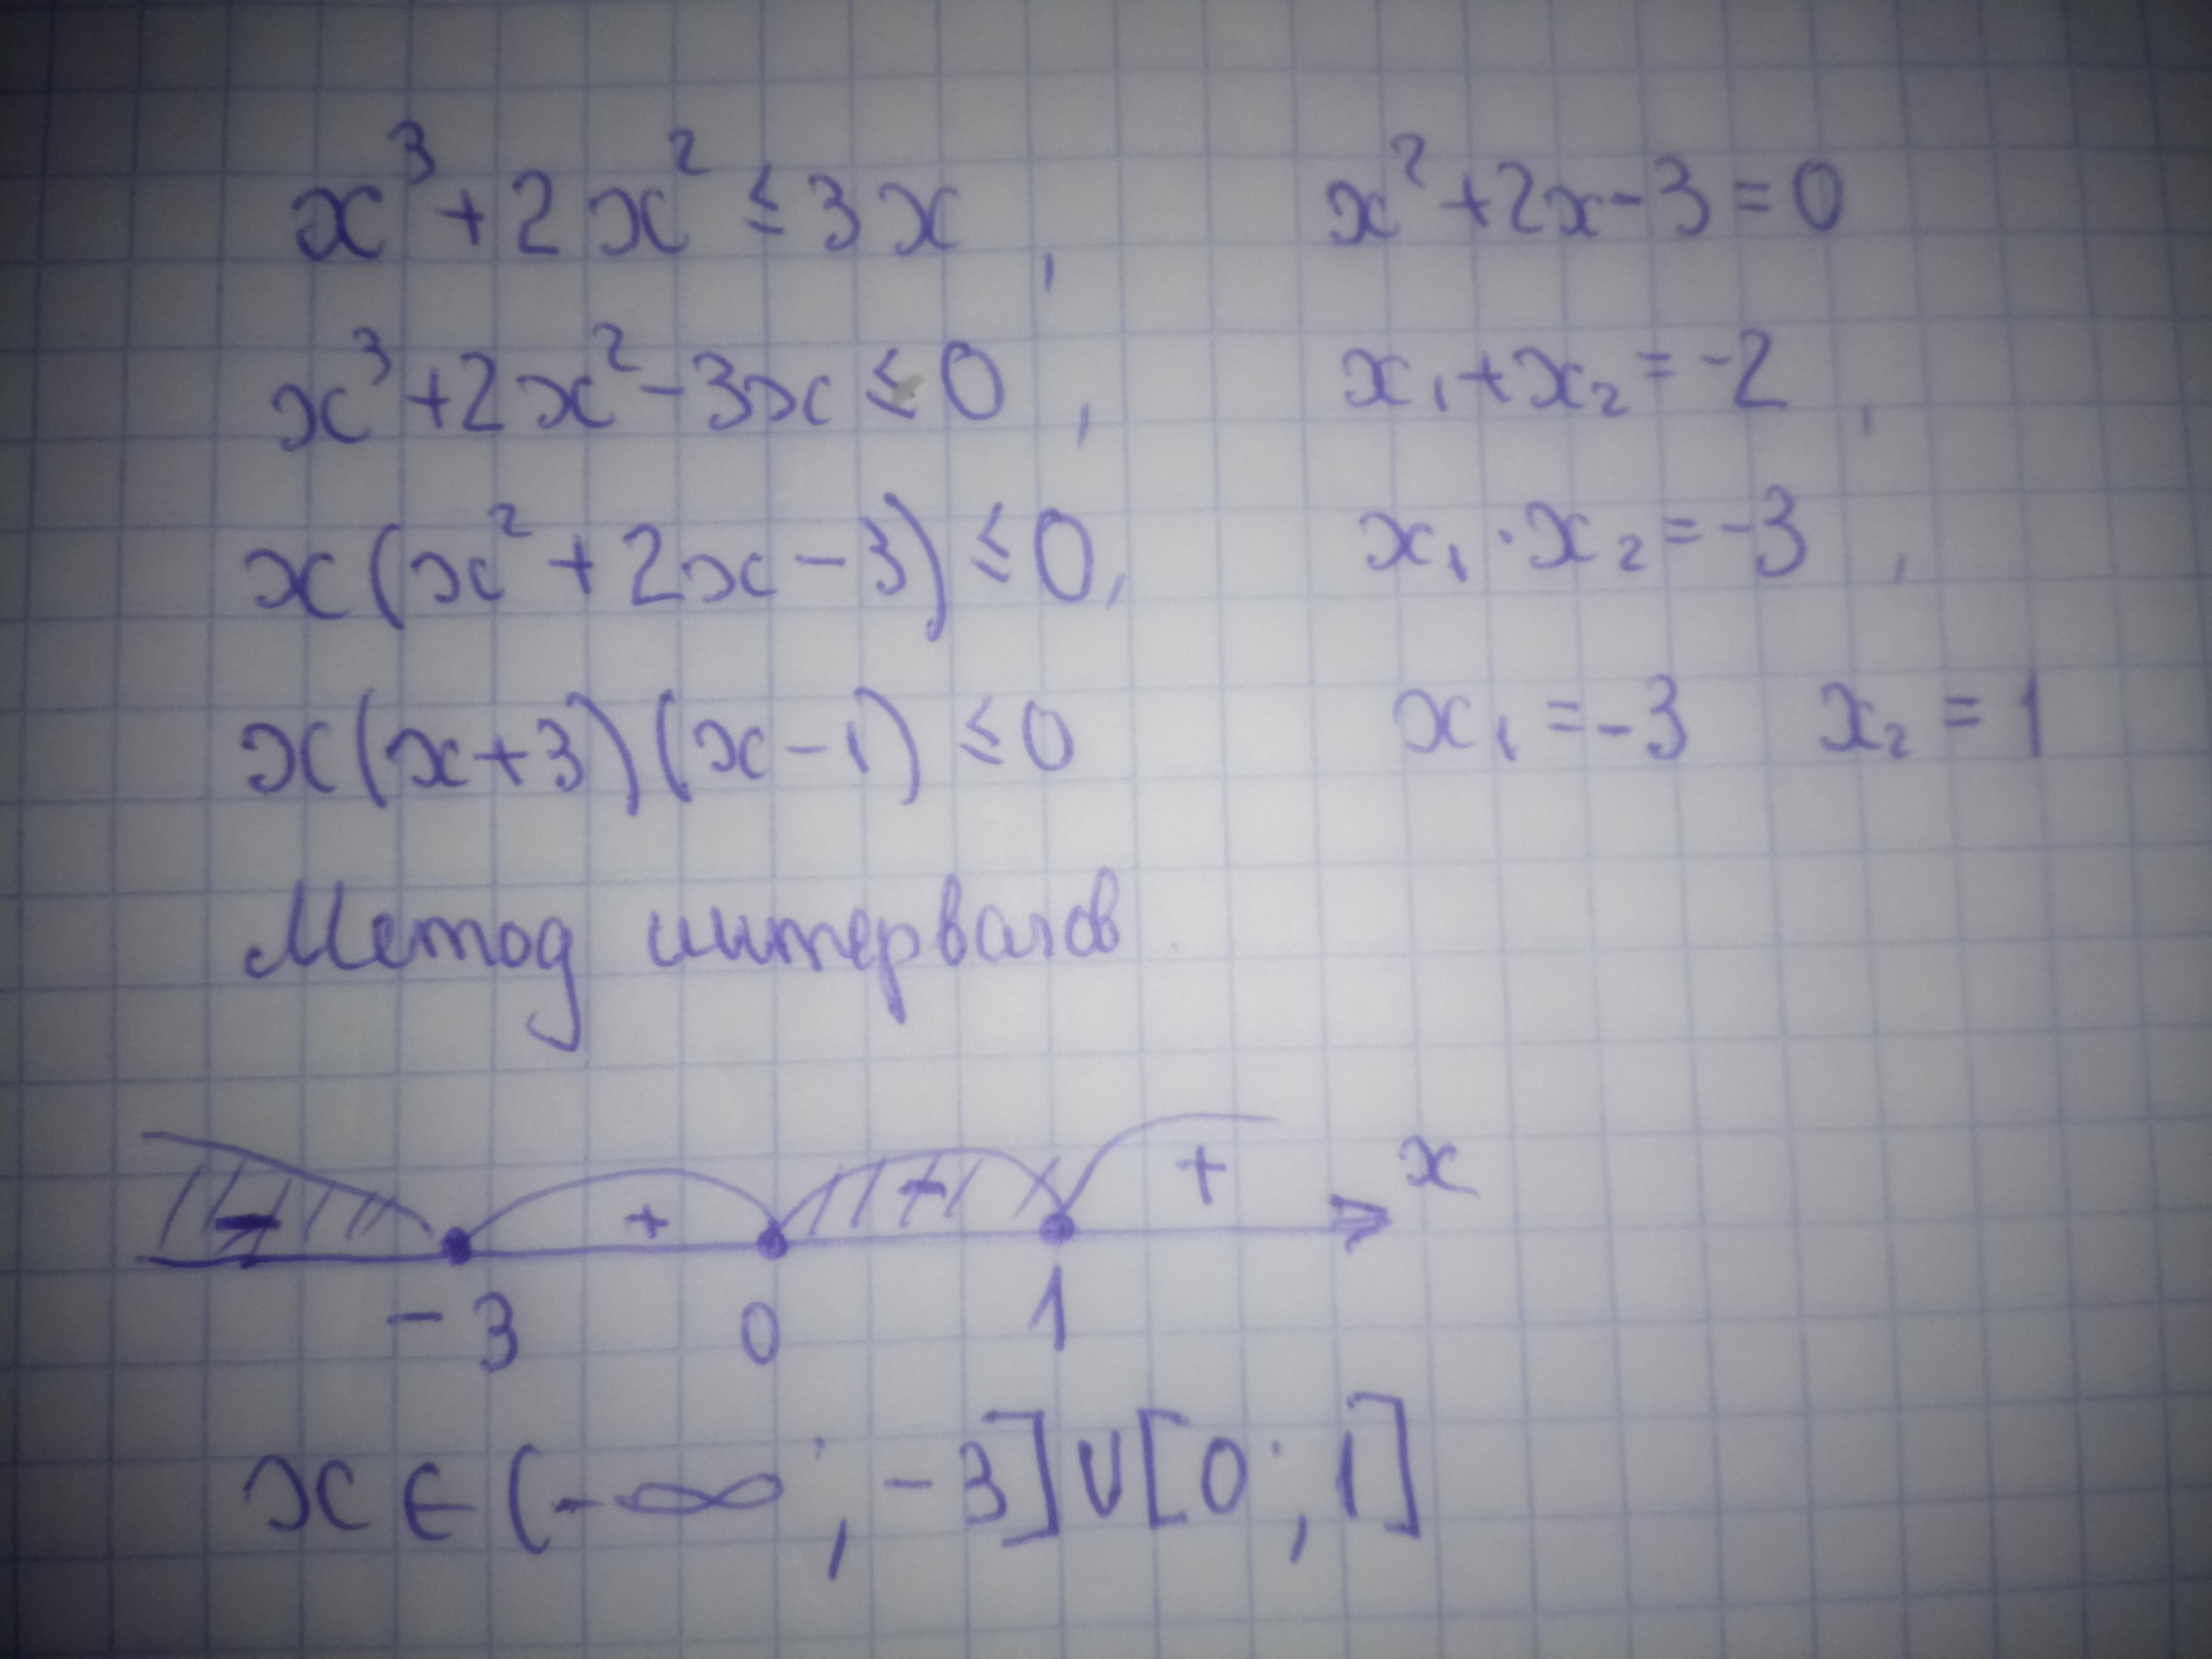 x³+2x² ≤ 3x,
x³+2x²-3x ≤ 0,
x(x²+2x-3) ≤ 0,
x(x+3)(x-1) ≤ 0
x²+2x-3=0
x₁+x₂=-2,
x₁·x₂=-3,
x₁=-3 x₂=1
Метод интервалов
- + - + x
-3 0 1
x∈(-∞;-3]∪[0;1]